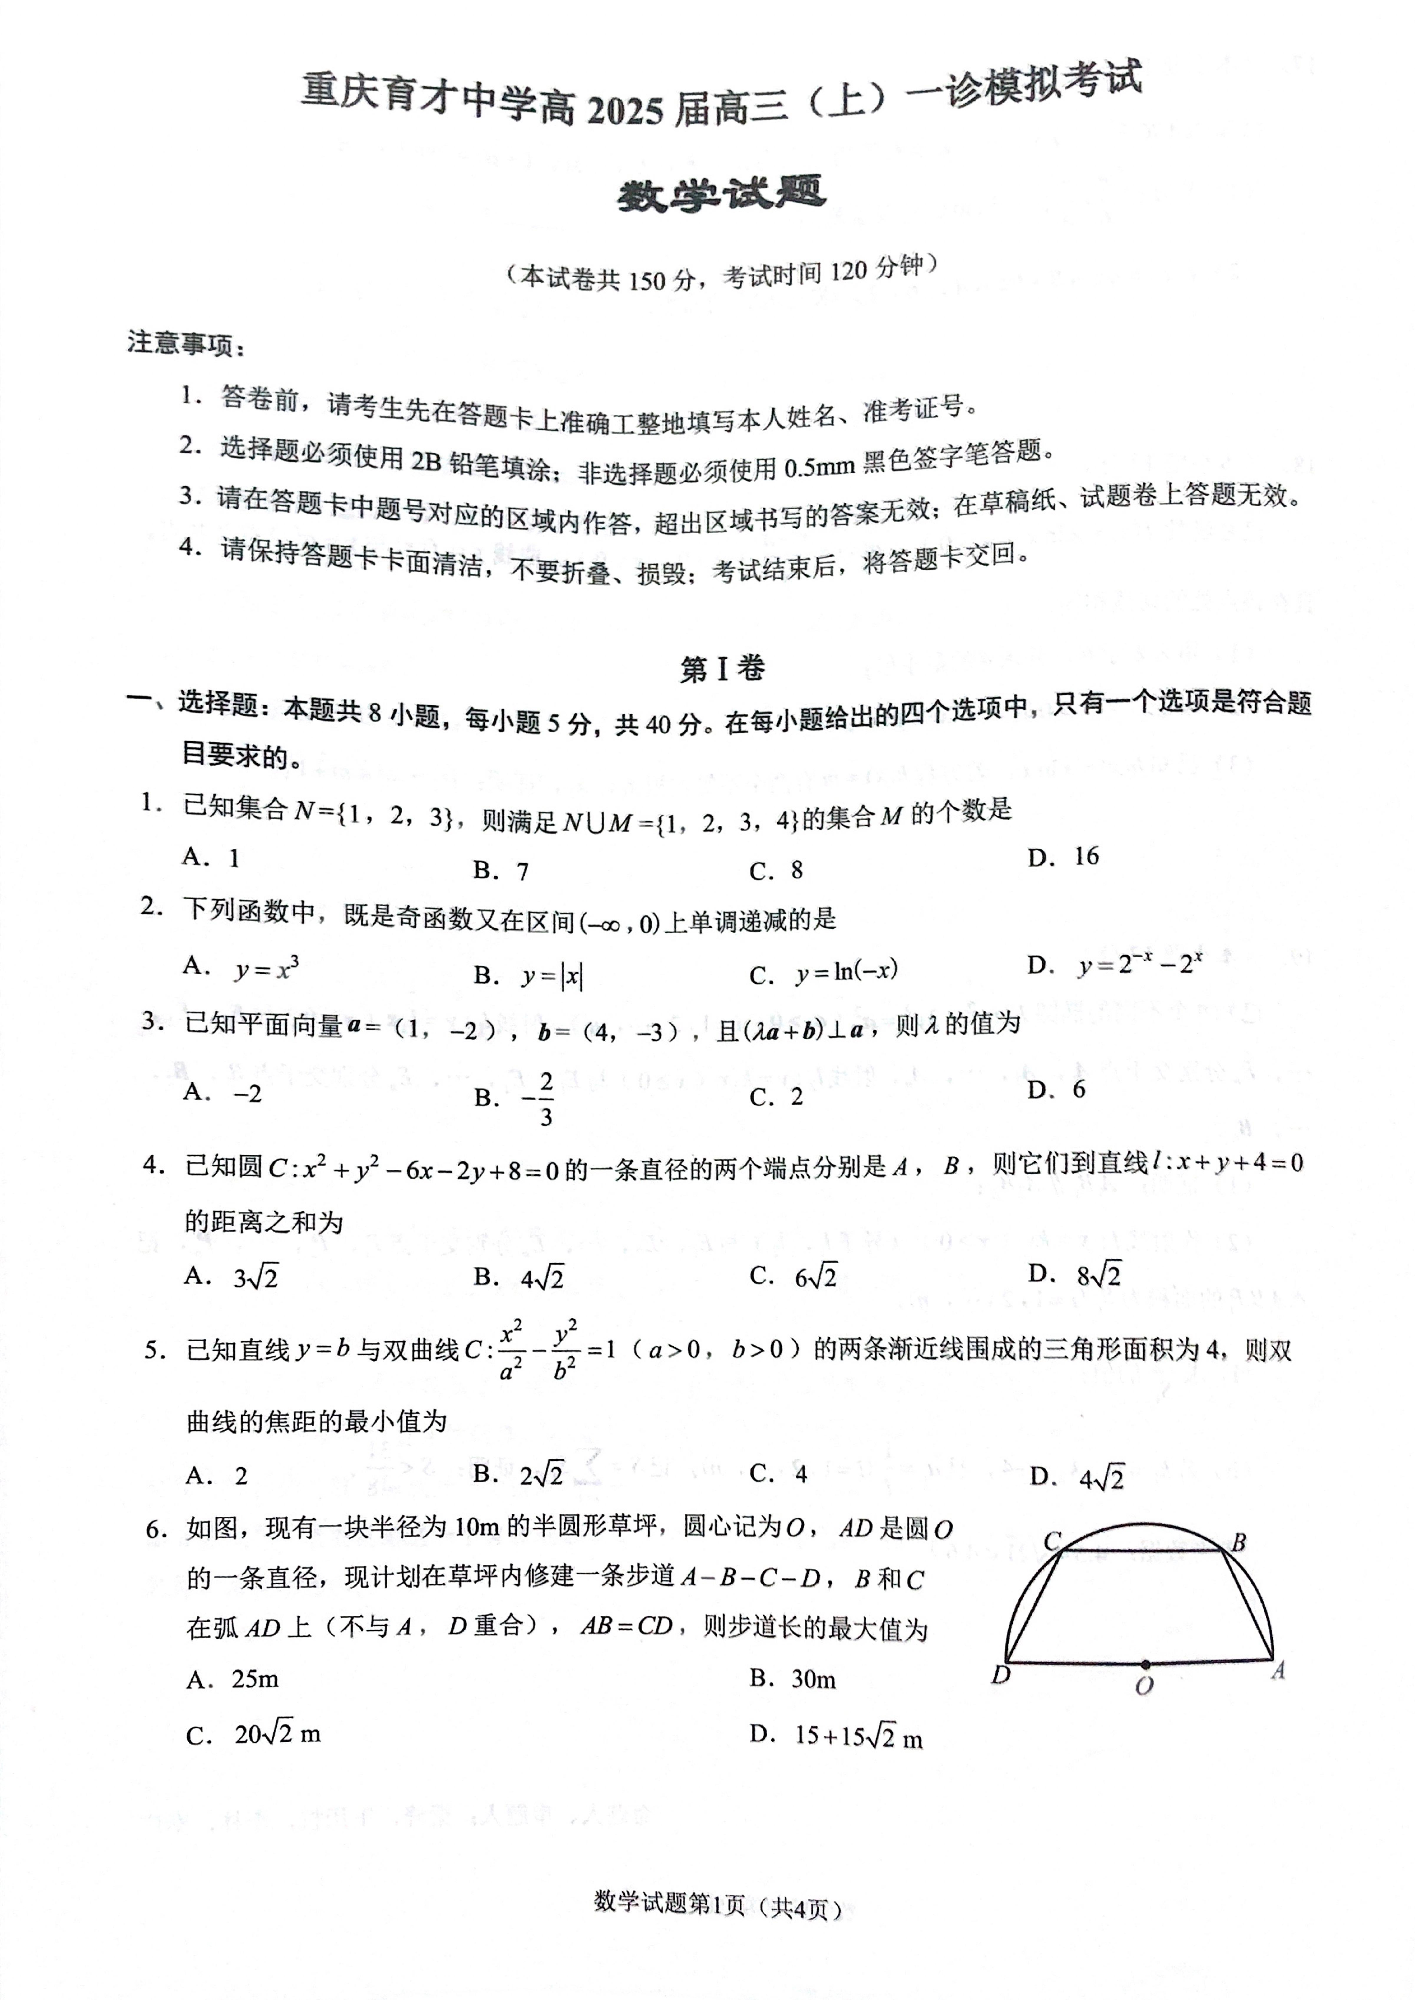 重庆育才中学高 2025 届高三（上）一诊模拟考试
数学试题
（本试卷共 150 分，考试时间 120 分钟）
注意事项：
1．答卷前，请考生先在答题卡上准确工整地填写本人姓名、准考证号。
2．选择题必须使用 2B 铅笔填涂；非选择题必须使用 0.5mm 黑色签字笔答题。
3．请在答题卡中题号对应的区域内作答，超出区域书写的答案无效；在草稿纸、试题卷上答题无效。
4．请保持答题卡卡面清洁，不要折叠、损毁；考试结束后，将答题卡交回。
第 I 卷
一、选择题：本题共 8 小题，每小题 5 分，共 40 分。在每小题给出的四个选项中，只有一个选项是符合题
目要求的。
1．已知集合 N={1，2，3}，则满足 N∪M={1，2，3，4}的集合 M 的个数是
A．1 B．7 C．8 D．16
2．下列函数中，既是奇函数又在区间(−∞,0)上单调递减的是
A．y=x³ B．y=|x| C．y=ln(−x) D．y=2⁻ˣ−2ˣ
3．已知平面向量 a=（1，−2），b=（4，−3），且(λa+b)⊥a，则 λ 的值为
A．−2 B．−2/3 C．2 D．6
4．已知圆 C:x²+y²−6x−2y+8=0 的一条直径的两个端点分别是 A，B，则它们到直线 l:x+y+4=0
的距离之和为
A．3√2 B．4√2 C．6√2 D．8√2
5．已知直线 y=b 与双曲线 C:x²/a²−y²/b²=1（a>0，b>0）的两条渐近线围成的三角形面积为 4，则双
曲线的焦距的最小值为
A．2 B．2√2 C．4 D．4√2
6．如图，现有一块半径为 10m 的半圆形草坪，圆心记为 O，AD 是圆 O
的一条直径，现计划在草坪内修建一条步道 A−B−C−D，B 和 C
在弧 AD 上（不与 A，D 重合），AB=CD，则步道长的最大值为
A．25m B．30m
C．20√2 m D．15+15√2 m
C B
D O A
数学试题第1页（共4页）